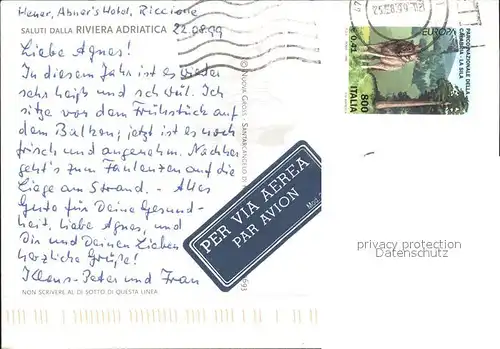 Abner's Hotel, Riccione
22.08.99
SALUTI DALLA RIVIERA ADRIATICA
Liebe Agnes!
In diesem Jahr ist es wieder
sehr heiß und schwül. Ich
sitze vor dem Frühstück auf
dem Balkon; jetzt ist es noch
frisch und angenehm. Nachher
geht's zum Faulenzen auf die
Liege am Strand. - Alles
Gute für Deine Gesund-
heit, liebe Agnes, und
Dir und Deinen Lieben
herzliche Grüße!
Klaus-Peter und Frau
NON SCRIVERE AL DI SOTTO DI QUESTA LINEA
PER VIA AEREA
PAR AVION
Mod.
EUROPA
€ 0,41
800
ITALIA
PARCO NAZIONALE DELLA
CALABRIA - LA SILA
privacy protection
Datenschutz